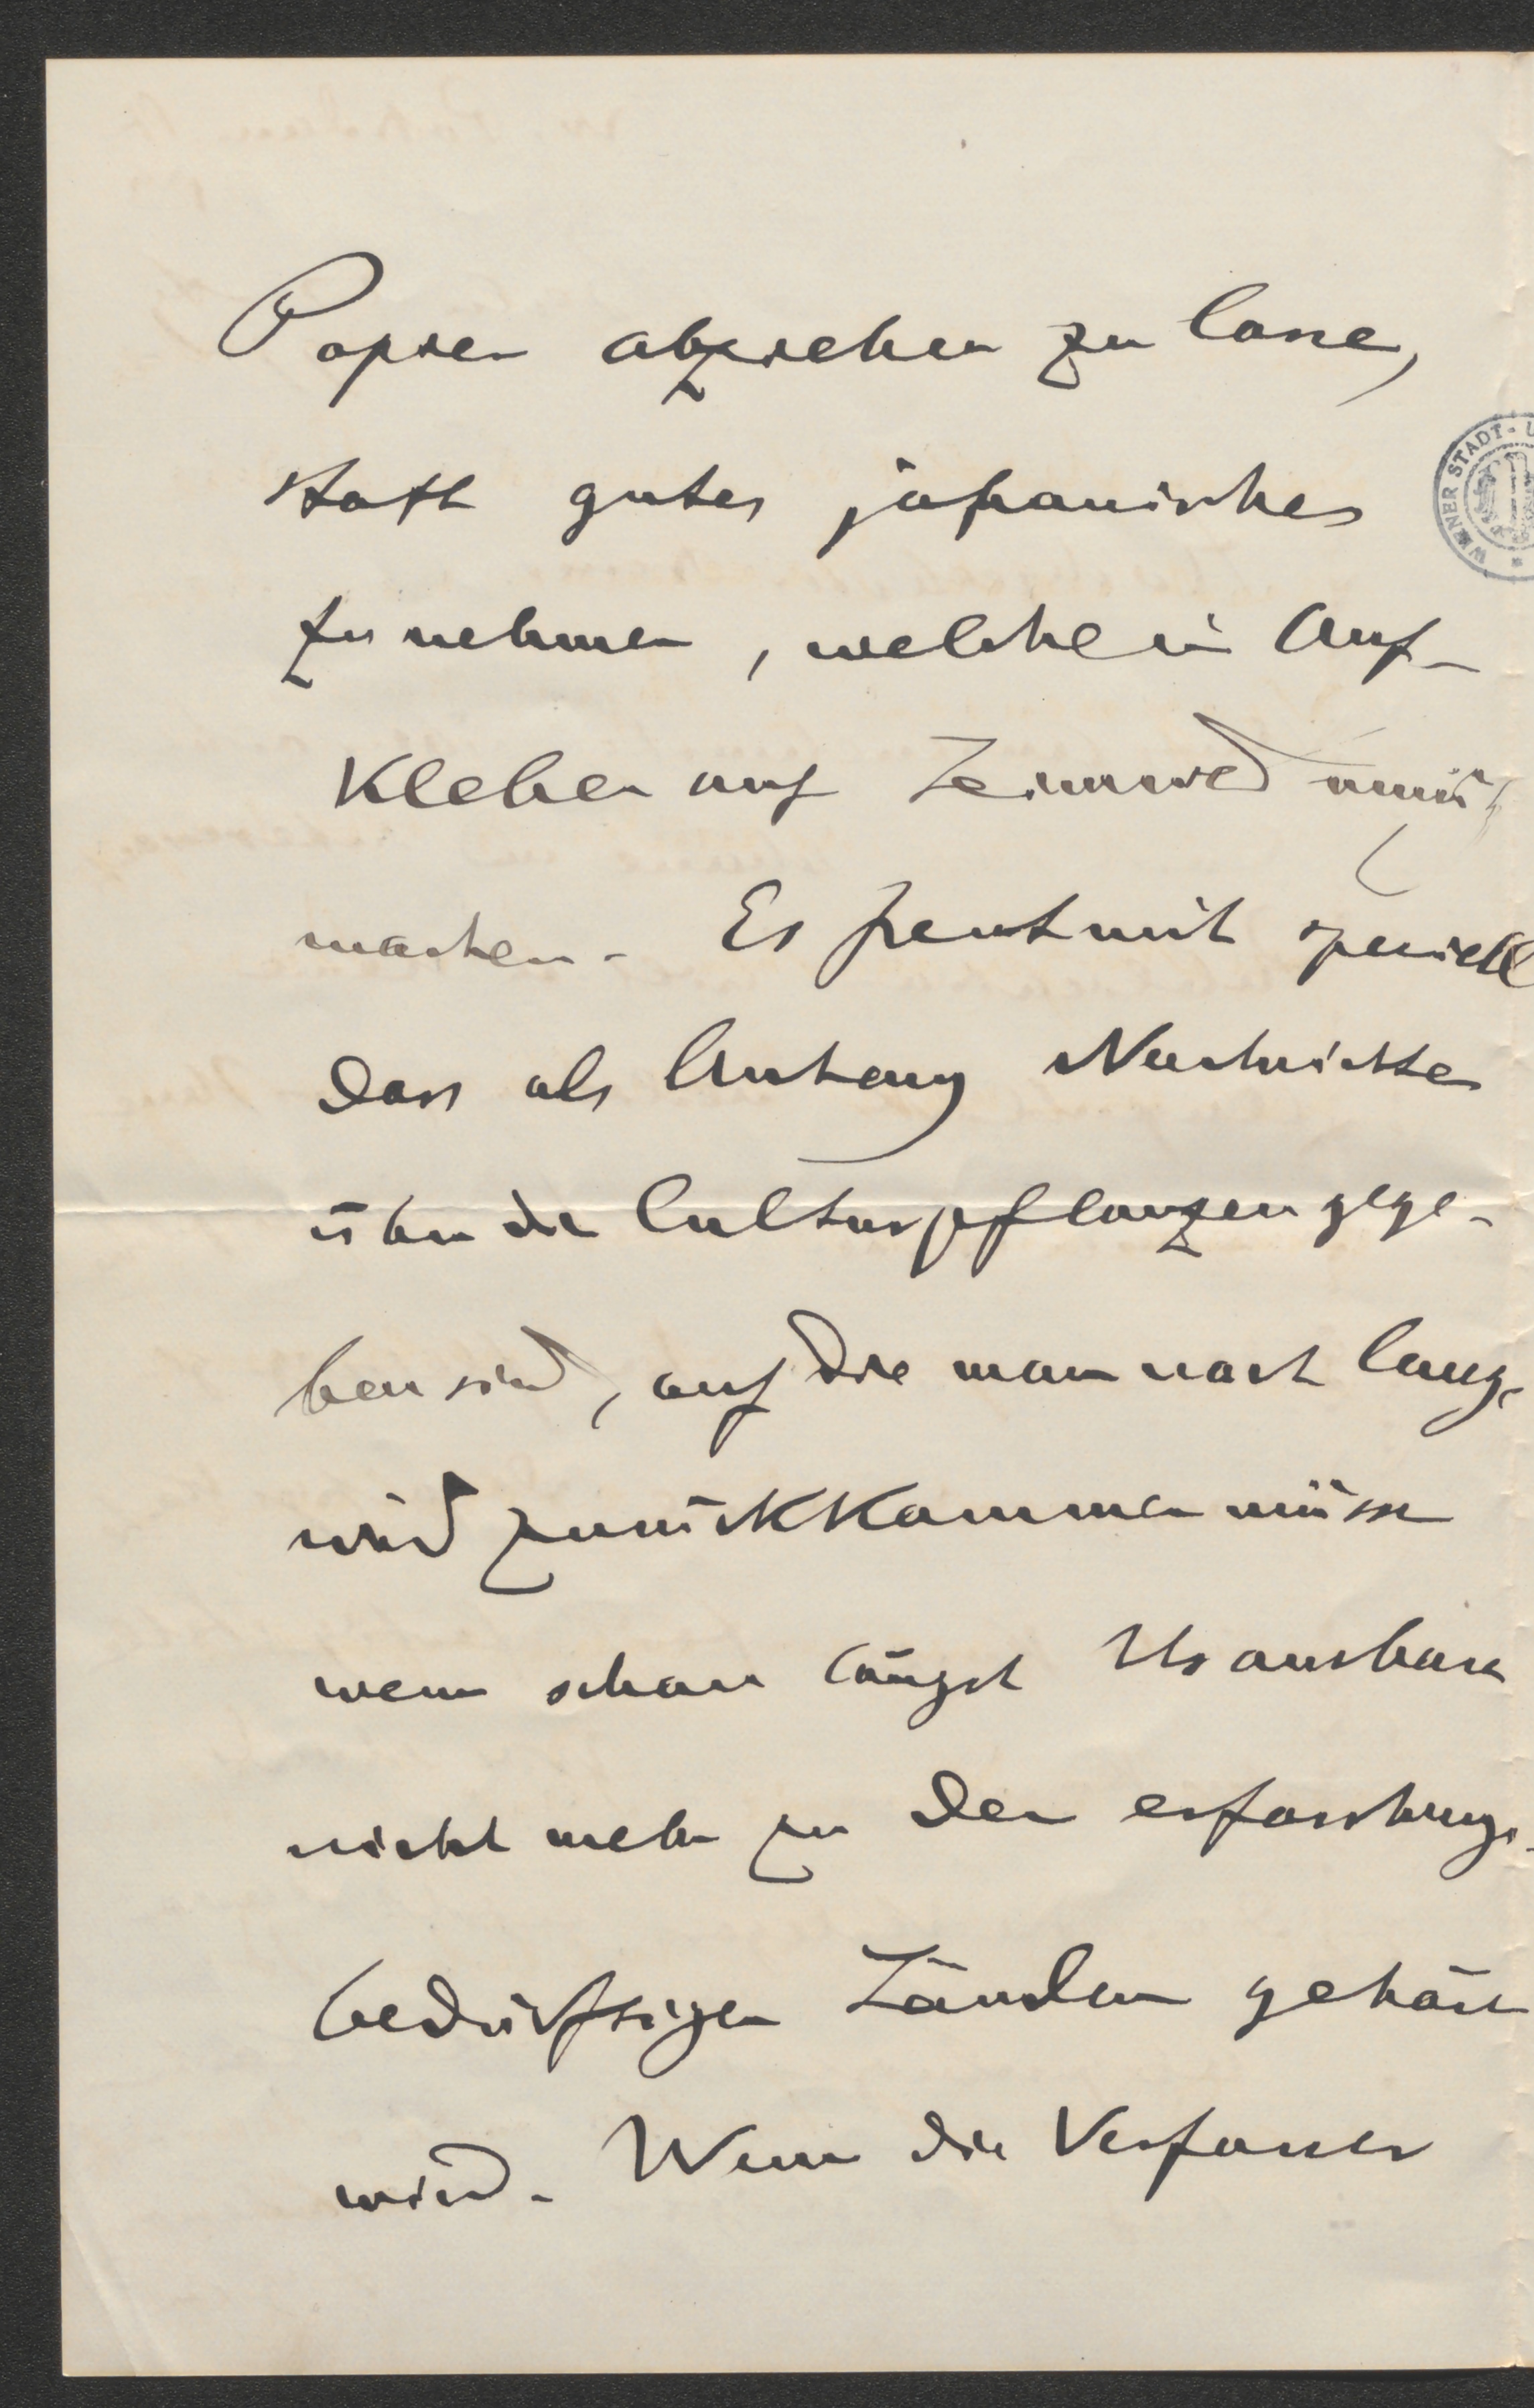 Papier abziehen zu lassen,
statt gutes japanisches
zu nehmen, welche ein Auf-
kleben auf Leinwand unnütz
machen. Es freut mich speciell
dass als Anhang Nachrichten
über die Culturpflanzen gege-
ben sind, auf die man nach lange
wird zurückkommen müssen
wenn schon längst Usambara
nicht mehr zu den erforschungs-
bedürftigen Ländern gehören
wird. Wenn die Verfasser
WIENER STADT-